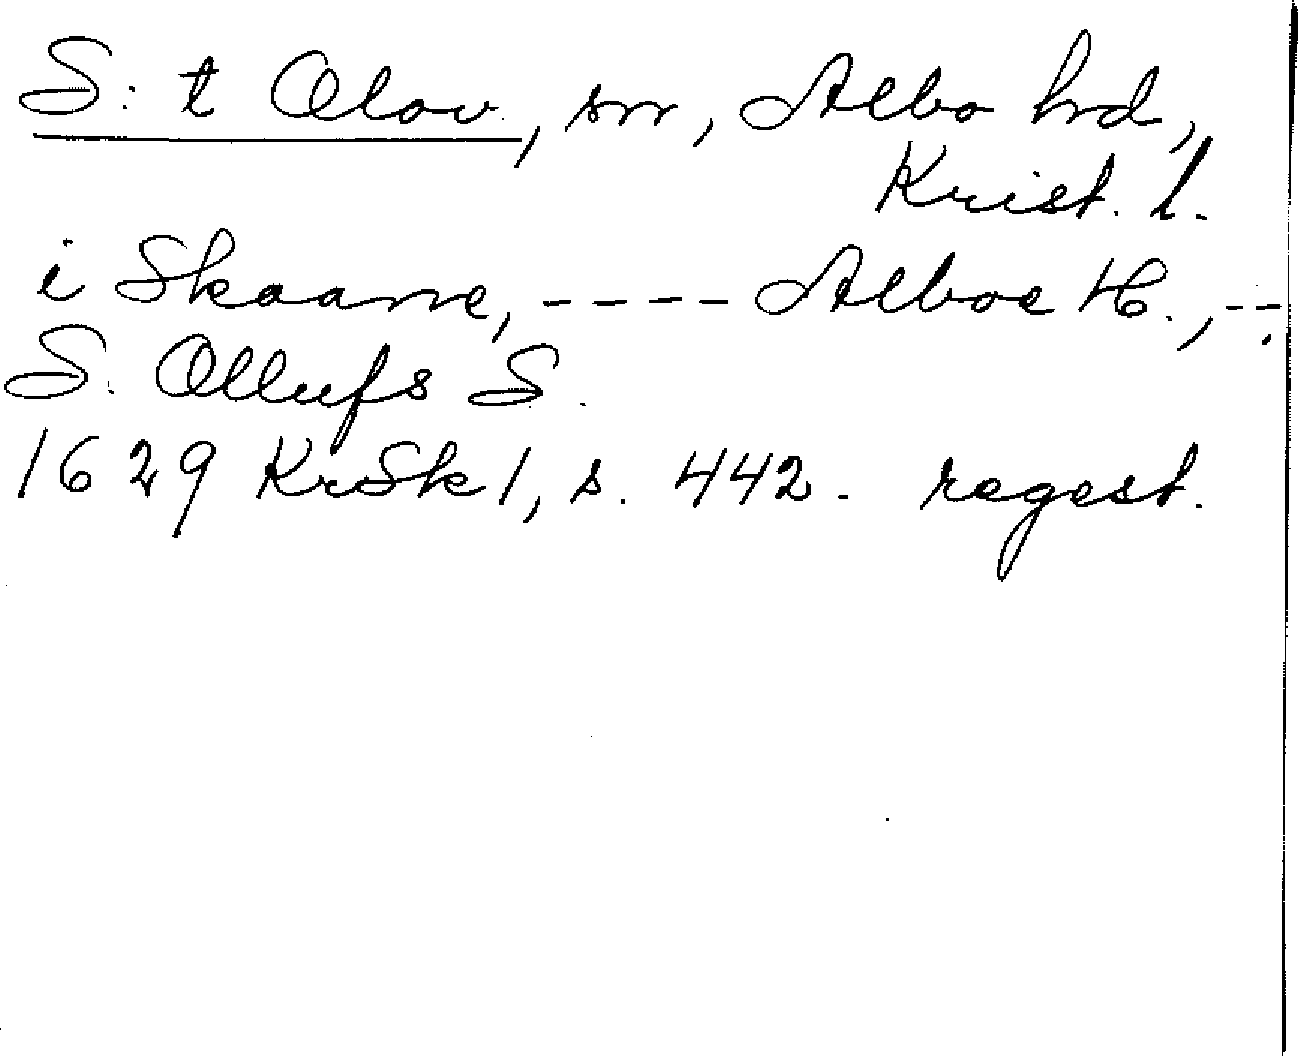 S:t Olov, sn, Albo hrd,
Krist. l.
i Skaane, ---- Alboe H., --
S. Ollufs S.
1629 KrSk 1, s. 442. regest.